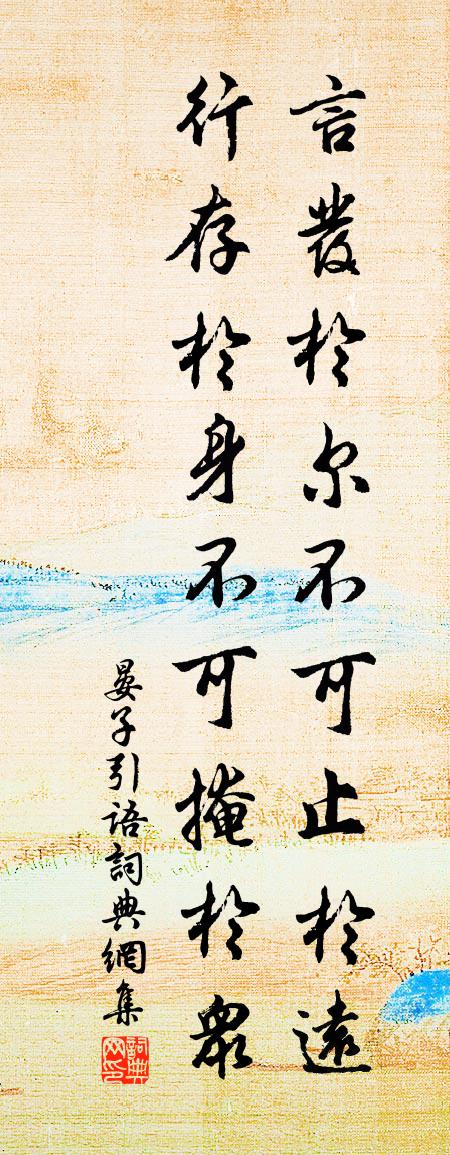 言發於尔不可止於遠
行存於身不可掩於衆
晏子引语詞典網集
詞典网印